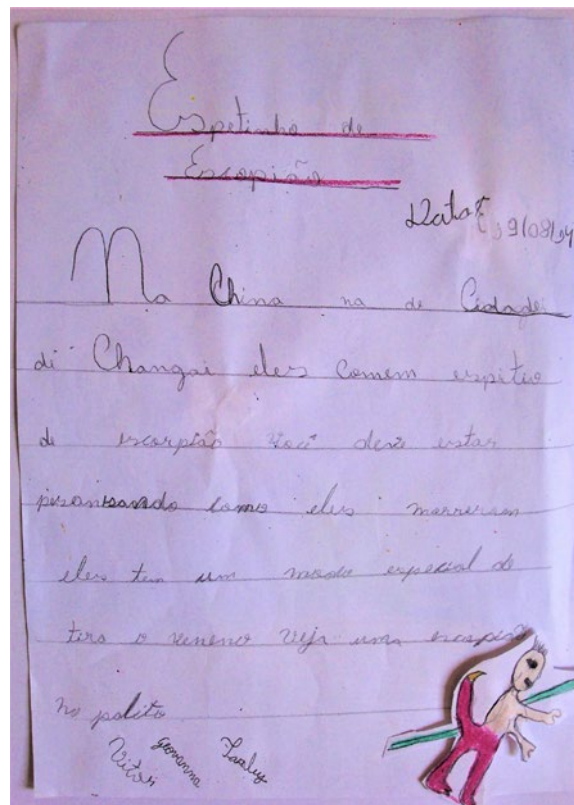 Espetinho de
Escopião
Data 19/08/14
Na China na de Cidade
di Changai eles comem espiteo
de escorpião você deve estar
como eles morreram
eles ten um modo especial de
tira o veneno veja uma escorpião
no palito
Vitor Geovanna